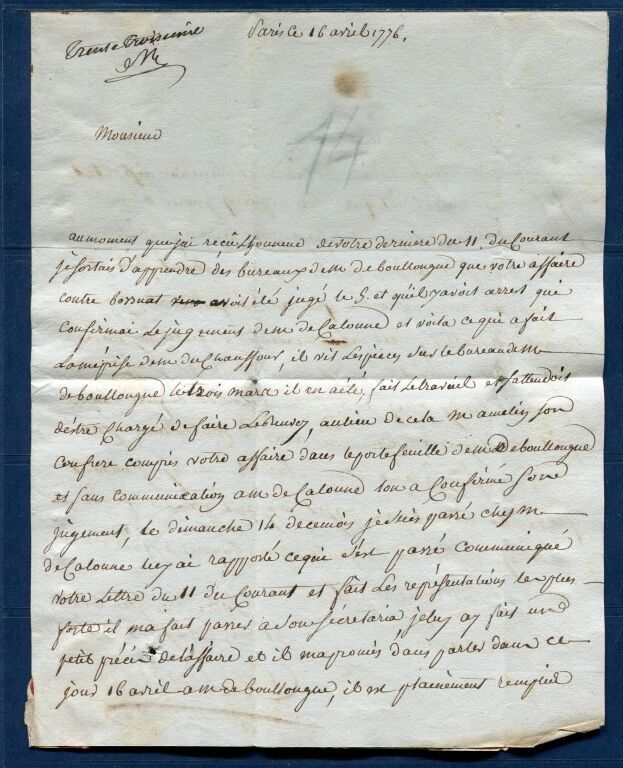 Paris Ce 16 avril 1776.
Trente Troisieme
44
Monsieur
au moment que j'ai reçû l'honneur de votre derniere du 11. du Courant
je sortais d'apprendre des bureaux de M de boullongue que votre affaire
contre avoit été jugé le 5. et qu'il y avoit arrest qui
confirmai Le jugement de M de Calonne et voila ce qui a fait
La méprise de M du Chauffour, il vit Les pièces sur le bureau de M
de boullongue le trois mars il en a été fait Le travail et s'attendois
d'estre Chargé de faire Le Renvoy, au lieu de cela M amelin son
Confrere compris votre affaire dans le portefeuille de M de boullongue
et sans communication a M de Calonne l'on a Confirmé son
jugement, le dimanche 14 de ce mois je suis passé chez M
de Calonne luy ai rapporté ce qui s'est passé Communiqué
votre Lettre du 11 du Courant et fait Les représentations les plus
forte il m'a fait passer a son sécrétaria je luy ay fait un
petit précis de l'affaire et il m'a promis d'en parler dans ce
jour 16 avril a M de boullongue, il est plainement